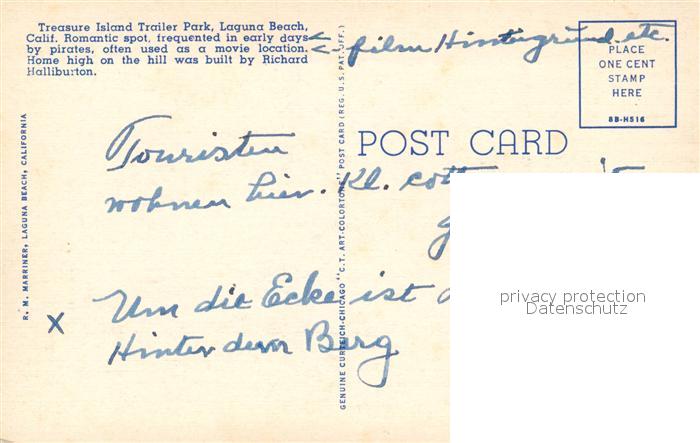 Treasure Island Trailer Park, Laguna Beach,
Calif. Romantic spot, frequented in early days
by pirates, often used as a movie location.
Home high on the hill was built by Richard
Halliburton.
← film Hintergrund. etc.
←
PLACE
ONE CENT
STAMP
HERE
8B-H516
POST CARD
Touristen
wohnen hier. Kl.
Um die Ecke ist
Hinter dem Berg
X
R. M. MARRINER, LAGUNA BEACH, CALIFORNIA
GENUINE CURTEICH-CHICAGO "C.T. ART-COLORTONE" POST CARD (REG. U.S. PAT. OFF.)
privacy protection
Datenschutz